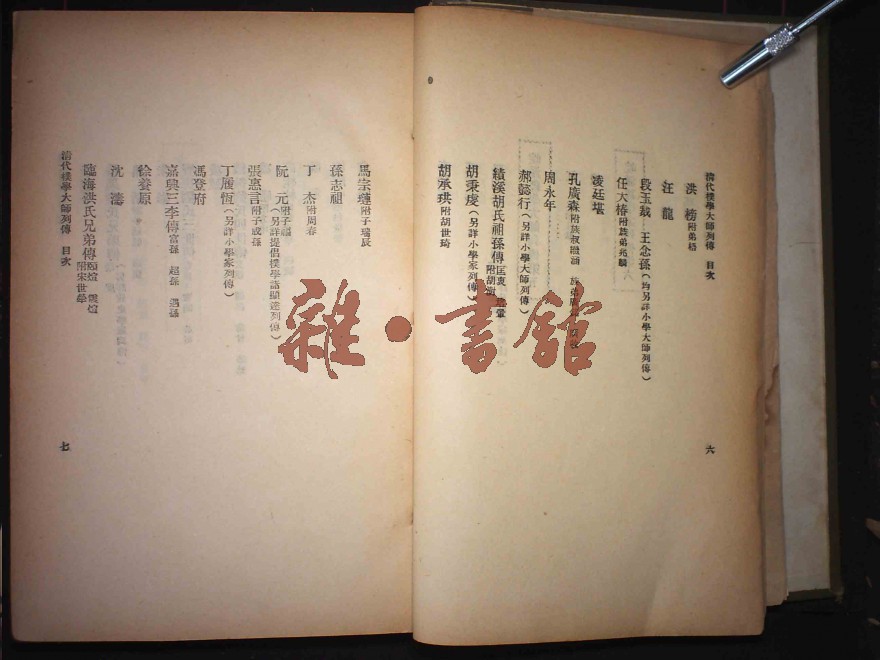 清代樸學大師列傳 目次
洪榜附弟梧
汪龍
段玉裁 王念孫(均另詳小學大師列傳)
任大椿附族弟兆麟
凌廷堪
孔廣森附族叔繼涵
周永年
郝懿行(另詳小學大師列傳)
績溪胡氏祖孫傳匡衷 附胡
胡秉虔(另詳小學家列傳)
胡承珙附胡世琦
六
馬宗璉附子瑞辰
孫志祖
丁杰附周春
阮元附子福(另詳提倡樸學諸顯達列傳)
張惠言附子成孫
丁履恆(另詳小學家列傳)
馮登府
嘉興三李傳富孫 超孫 遇孫
徐養原
沈濤
臨海洪氏兄弟傳頤煊 震煊 附宋世犖
清代樸學大師列傳 目次
七
雜·書館